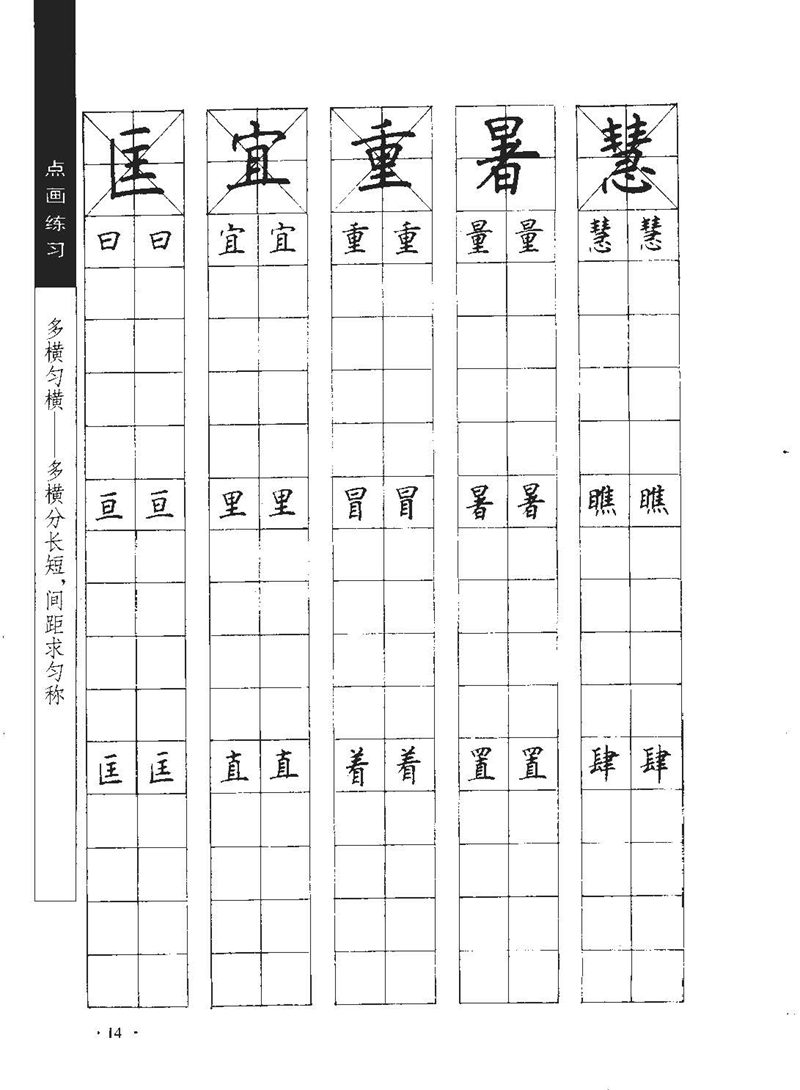 点画练习
多横匀横——多横分长短，间距求匀称
匡 宜 重 暑 慧
曰 曰 宜 宜 重 重 量 量 慧 慧
亘 亘 里 里 冒 冒 暑 暑 瞧 瞧
匡 匡 直 直 着 着 置 置 肆 肆
· 14 ·